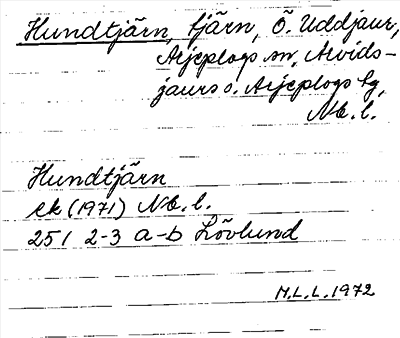 Hundtjärn, tjärn, Ö. Uddjaur,
Arjeplogs sn, Arvids-
jaurs o. Arjeplogs tg,
Nb. l.
Hundtjärn
ek (1971) Nb. l.
25 I 2-3 a-b Lövlund
M.L.L. 1972